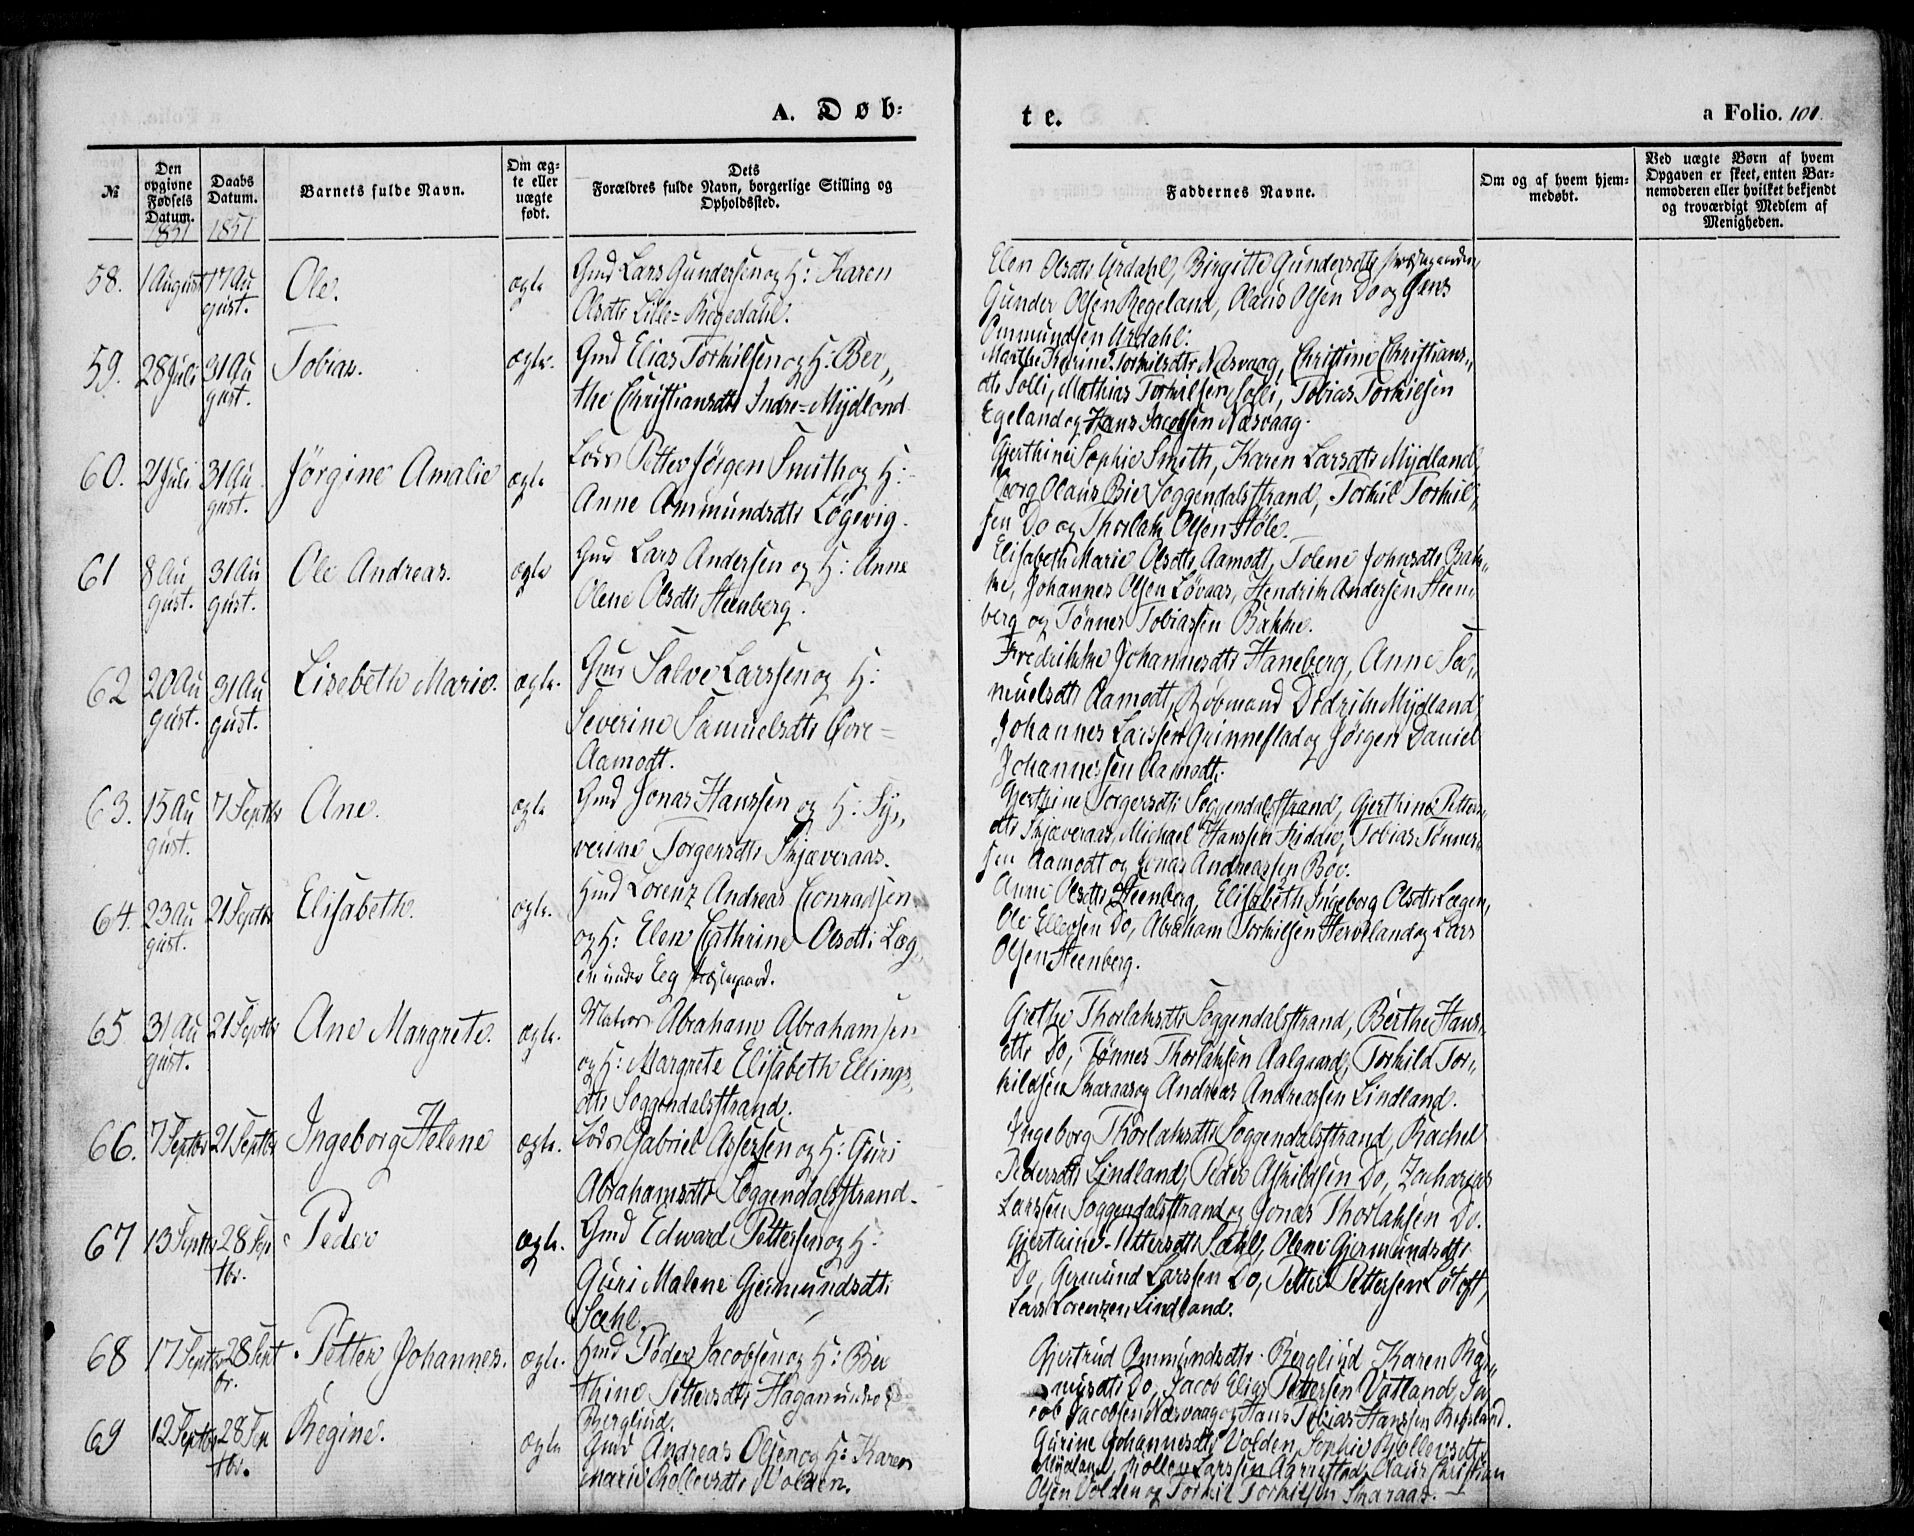 A. Døb-
te.
a Folio. 101.
№
Den opgivne Fødsels Datum. 1851
Daabs Datum. 1851
Barnets fulde Navn.
Om ægte eller uægte født.
Dets Forældres fulde Navn, borgerlige Stilling og Opholdssted.
Faddernes Navne.
Om og af hvem hjemmedøbt.
Ved uægte Børn af hvem Opgaven er skeet, enten Barnemoderen eller hvilket bekjendt og troværdigt Medlem af Menigheden.
58. 1 August 17 August. Ole. ægte
Gmd Lars Gundersen og H: Karen
Olsdtr Lille=Regedahl.
Elen Olsdtr Urdahl, Birgitte Gundersdtr
Gunder Olsen Regeland, Olaus Olsen Do og Jens
Ommundsen Urdahl.
59. 28 Juli 31 August. Tobias. ægte.
Gmd Elias Torkilsen og H: Ber„
the Christiansdtr Indre=Mydland
Marthe Karine Torkilsdtr Næsvaag, Christine Christians„
dtr Solli, Mathias Torkilsen Solli, Tobias Torkilsen
Egeland og Hans Jacobsen Næsvaag.
60. 21 Juli 31 August. Jørgine Amalie ægte
Lods Petter Jørgen Smith og H:
Anne Ommundsdtr Løgevig.
Gjerthine Sophie Smith, Karen Larsdtr Mydland,
Georg Olaus Bie Soggendalsstrand, Torkil Torkil„
sen Do og Thorlak Olsen Støle.
61 8 August. 31 August. Ole Andreas. ægte
Gmd Lars Andersen og H: Anne
Olene Olsdtr Steenberg.
Elisabeth Marie Olsdtr Aamodt, Tolene Johnsdtr Bak„
ke, Johannes Olsen Løvaas, Hendrik Andersen Steen„
berg og Tønnes Tobiassen Bakke.
62 20 August. 31 August. Lisebeth Marie. ægte.
Gmd Salve Larssen og H:
Severine Samuelsdtr Øvre=
Aamodt.
Fredrikke Johannesdtr Haneberg, Anne Sa„
muelsdtr Aamodt, Kobmand Didrik Mydland
Johannes Larssen Grinneflad og Jørgen Daniel
Johannessen Aamodt.
63. 15 August. 7 Septbr Ane. ægte
Gmd Jonas Hanssen og H: Sy„
verine Torgersdtr Skjæveraas.
Gjerthine Torgersdtr Soggendalsstrand, Gjerthine Petters„
dtr Skjæveraas, Michael Hanssen Tobias Tønnes„
sen Aamodt og Jonas Andreassen Bøe.
64. 23 August. 21 Septbr Elisabeth. ægte.
Hmd Lorenz Andreas Conradsen
og H: Elen Cathrine Olsdtr Læg„
en under Eeg Præstegaard.
Anne Olsdtr Steenberg, Elisabeth Ingeborg Olsdtr Lægen,
Ole Ellefsen Do, Abraham Torkilsen Herveland og Lars
Olsen Steenberg.
65 31 August. 21 Septbr Ane Margrete. ægte.
Matros Abraham Abrahamsen
og H: Margrete Elisabeth Ellings„
dtr Soggendalsstrand.
Grethe Thorlaksdtr Soggendalsstrand, Berthe Hans„
dtr Do, Tønnes Thorlaksen Aalgaard, Torkild Tor„
kildsen Skaraas og Andreas Andreassen Lindland.
66. 7 Septbr 21 Septbr Ingeborg Helene ægte.
Lods Gabriel Assersen og H: Guri
Abrahamsdtr Soggendalsstrand.
Ingeborg Thorlaksdtr Soggendalsstrand, Rachel
Pedersdtr Lindland, Peder Askildsen Do, Zacharias
Larssen Soggendalsstrand og Jonas Thorlaksen Do.
67 13 Septbr 28 Septbr. Peder ægte.
Gmd Edward Pettersen og H:
Guri Malene Gjermundsdtr
Sæhl.
Gjerthine Pettersdtr Sæhl, Olene Gjermundsdtr
Do, Germund Larssen Do, Petter Pettersen Løtoft,
Lars Lorenzen Lindland.
68 17 Septbr 28 Septbr. Petter Johannes. ægte.
Hmd Peder Jacobsen og H: Ber
thine Pettersdtr Hagan under
Berglind.
Gjertrud Ommundsdtr Berglind Karen Ras„
musdtr Do, Jacob Elias Pettersen Vatland, Ja
cob Jacobsen Næsvaag og Hans Tobias Hanssen Refsland.
69 12 Septbr 28 Septbr. Regine. ægte
Gmd Andreas Olsen og H: Karen
Marie Rollevsdtr Volden.
Gurine Johannesdtr Volden, Sophie Rollevsdtr
Mydland, Rollev Larssen Aarrestad, Olaus Christian
Olsen Volden og Torkil Torkilsen Skaraas.